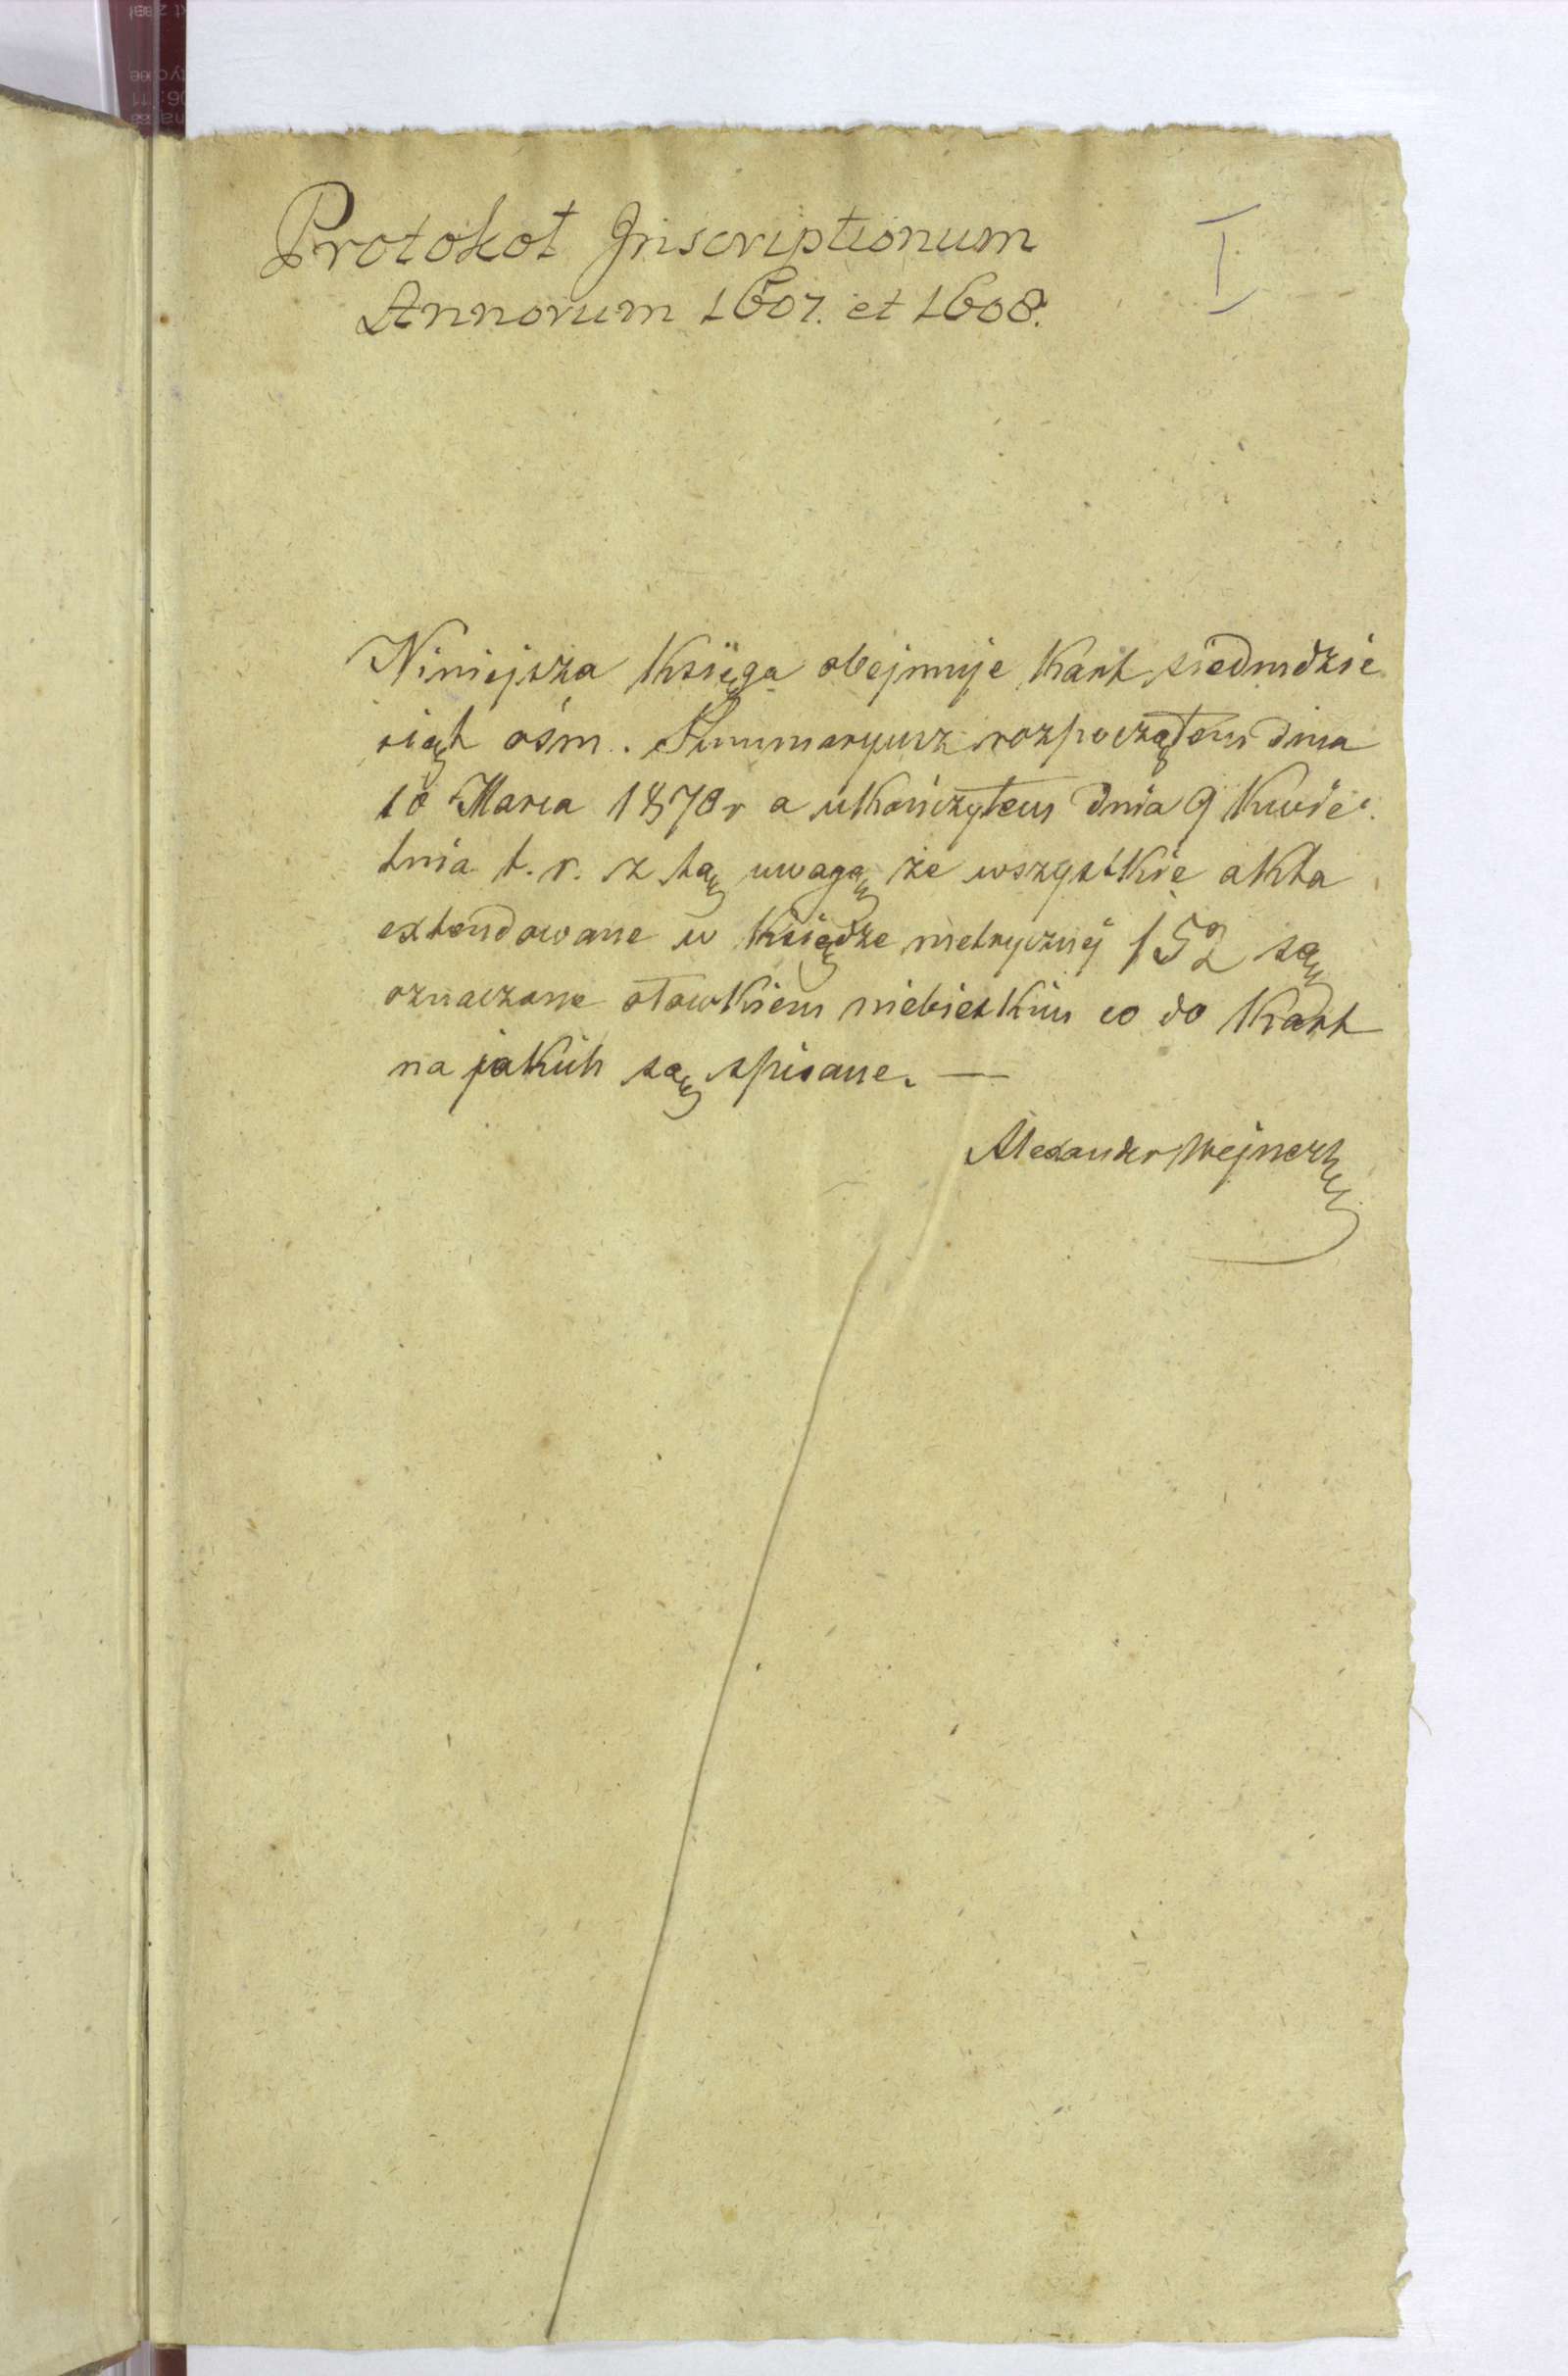 Protokoł Inscriptionum
I
Annorum 1607. et 1608.
Niniejsza Księga obejmuje Kart siedmdzie
siąt ośm. Summaryusz rozpocząłem dnia
10 Marca 1870 r a ukończyłem dnia 9 Kwie-
tnia t. r. z tą uwagą że wszystkie akta
extendowane w Księdze metrycznéj 152 są
oznaczone ołowkiem niebieskim co do Kart
na jakich są spisane. —
Alexander Wejnert